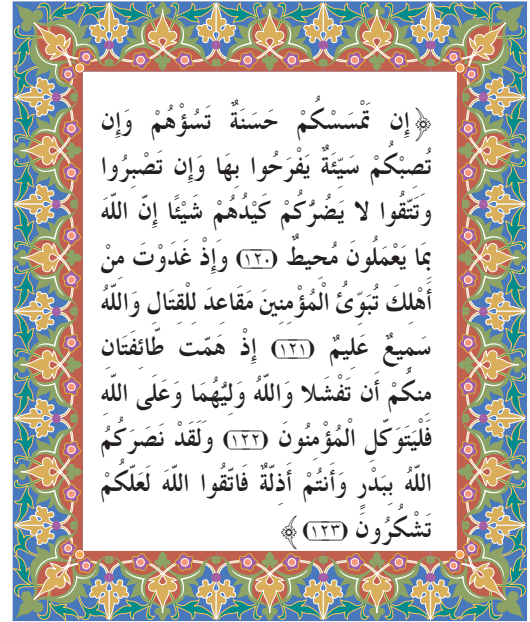 ﴿إِن تَمْسَسْكُمْ حَسَنَةٌ تَسُؤْهُمْ وَإِن
تُصِبْكُمْ سَيِّئَةٌ يَفْرَحُوا بِهَا وَإِن تَصْبِرُوا
وَتَتَّقُوا لا يَضُرُّكُمْ كَيْدُهُمْ شَيْئًا إِنَّ اللَّهَ
بِمَا يَعْمَلُونَ مُحِيطٌ (١٢٠) وَإِذْ غَدَوْتَ مِنْ
أَهْلِكَ تُبَوِّئُ الْمُؤْمِنِينَ مَقَاعِدَ لِلْقِتَالِ وَاللَّهُ
سَمِيعٌ عَلِيمٌ (١٢١) إِذْ هَمَّت طَّائِفَتَانِ
مِنكُمْ أَن تَفْشَلا وَاللَّهُ وَلِيُّهُمَا وَعَلَى اللَّهِ
فَلْيَتَوَكَّلِ الْمُؤْمِنُونَ (١٢٢) وَلَقَدْ نَصَرَكُمُ
اللَّهُ بِبَدْرٍ وَأَنتُمْ أَذِلَّةٌ فَاتَّقُوا اللَّهَ لَعَلَّكُمْ
تَشْكُرُونَ (١٢٣)﴾